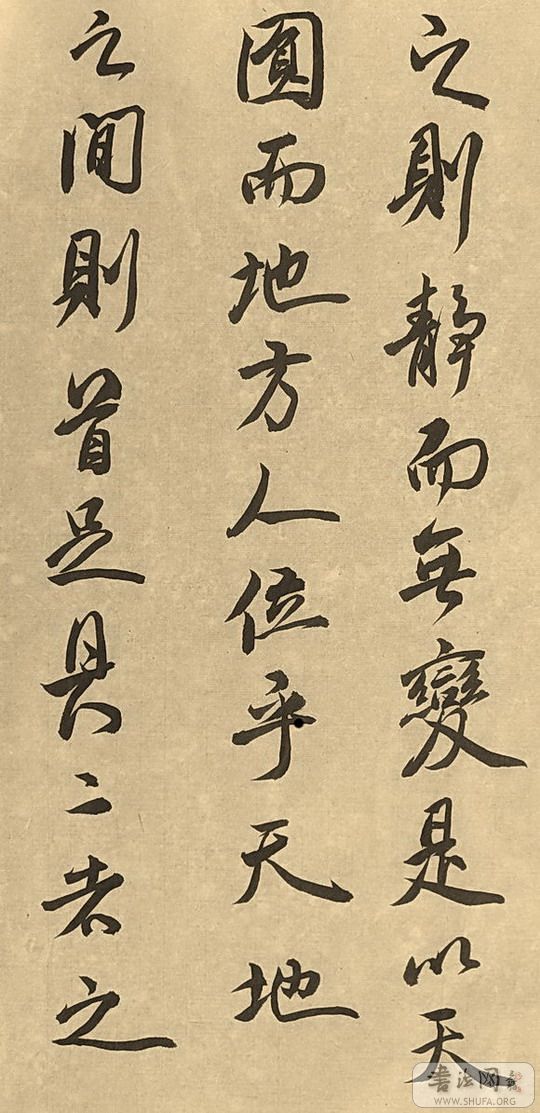 之則靜而無變是以天
圓而地方人位乎天地
之間則首足具二者之
書法网
WWW.SHUFA.ORG